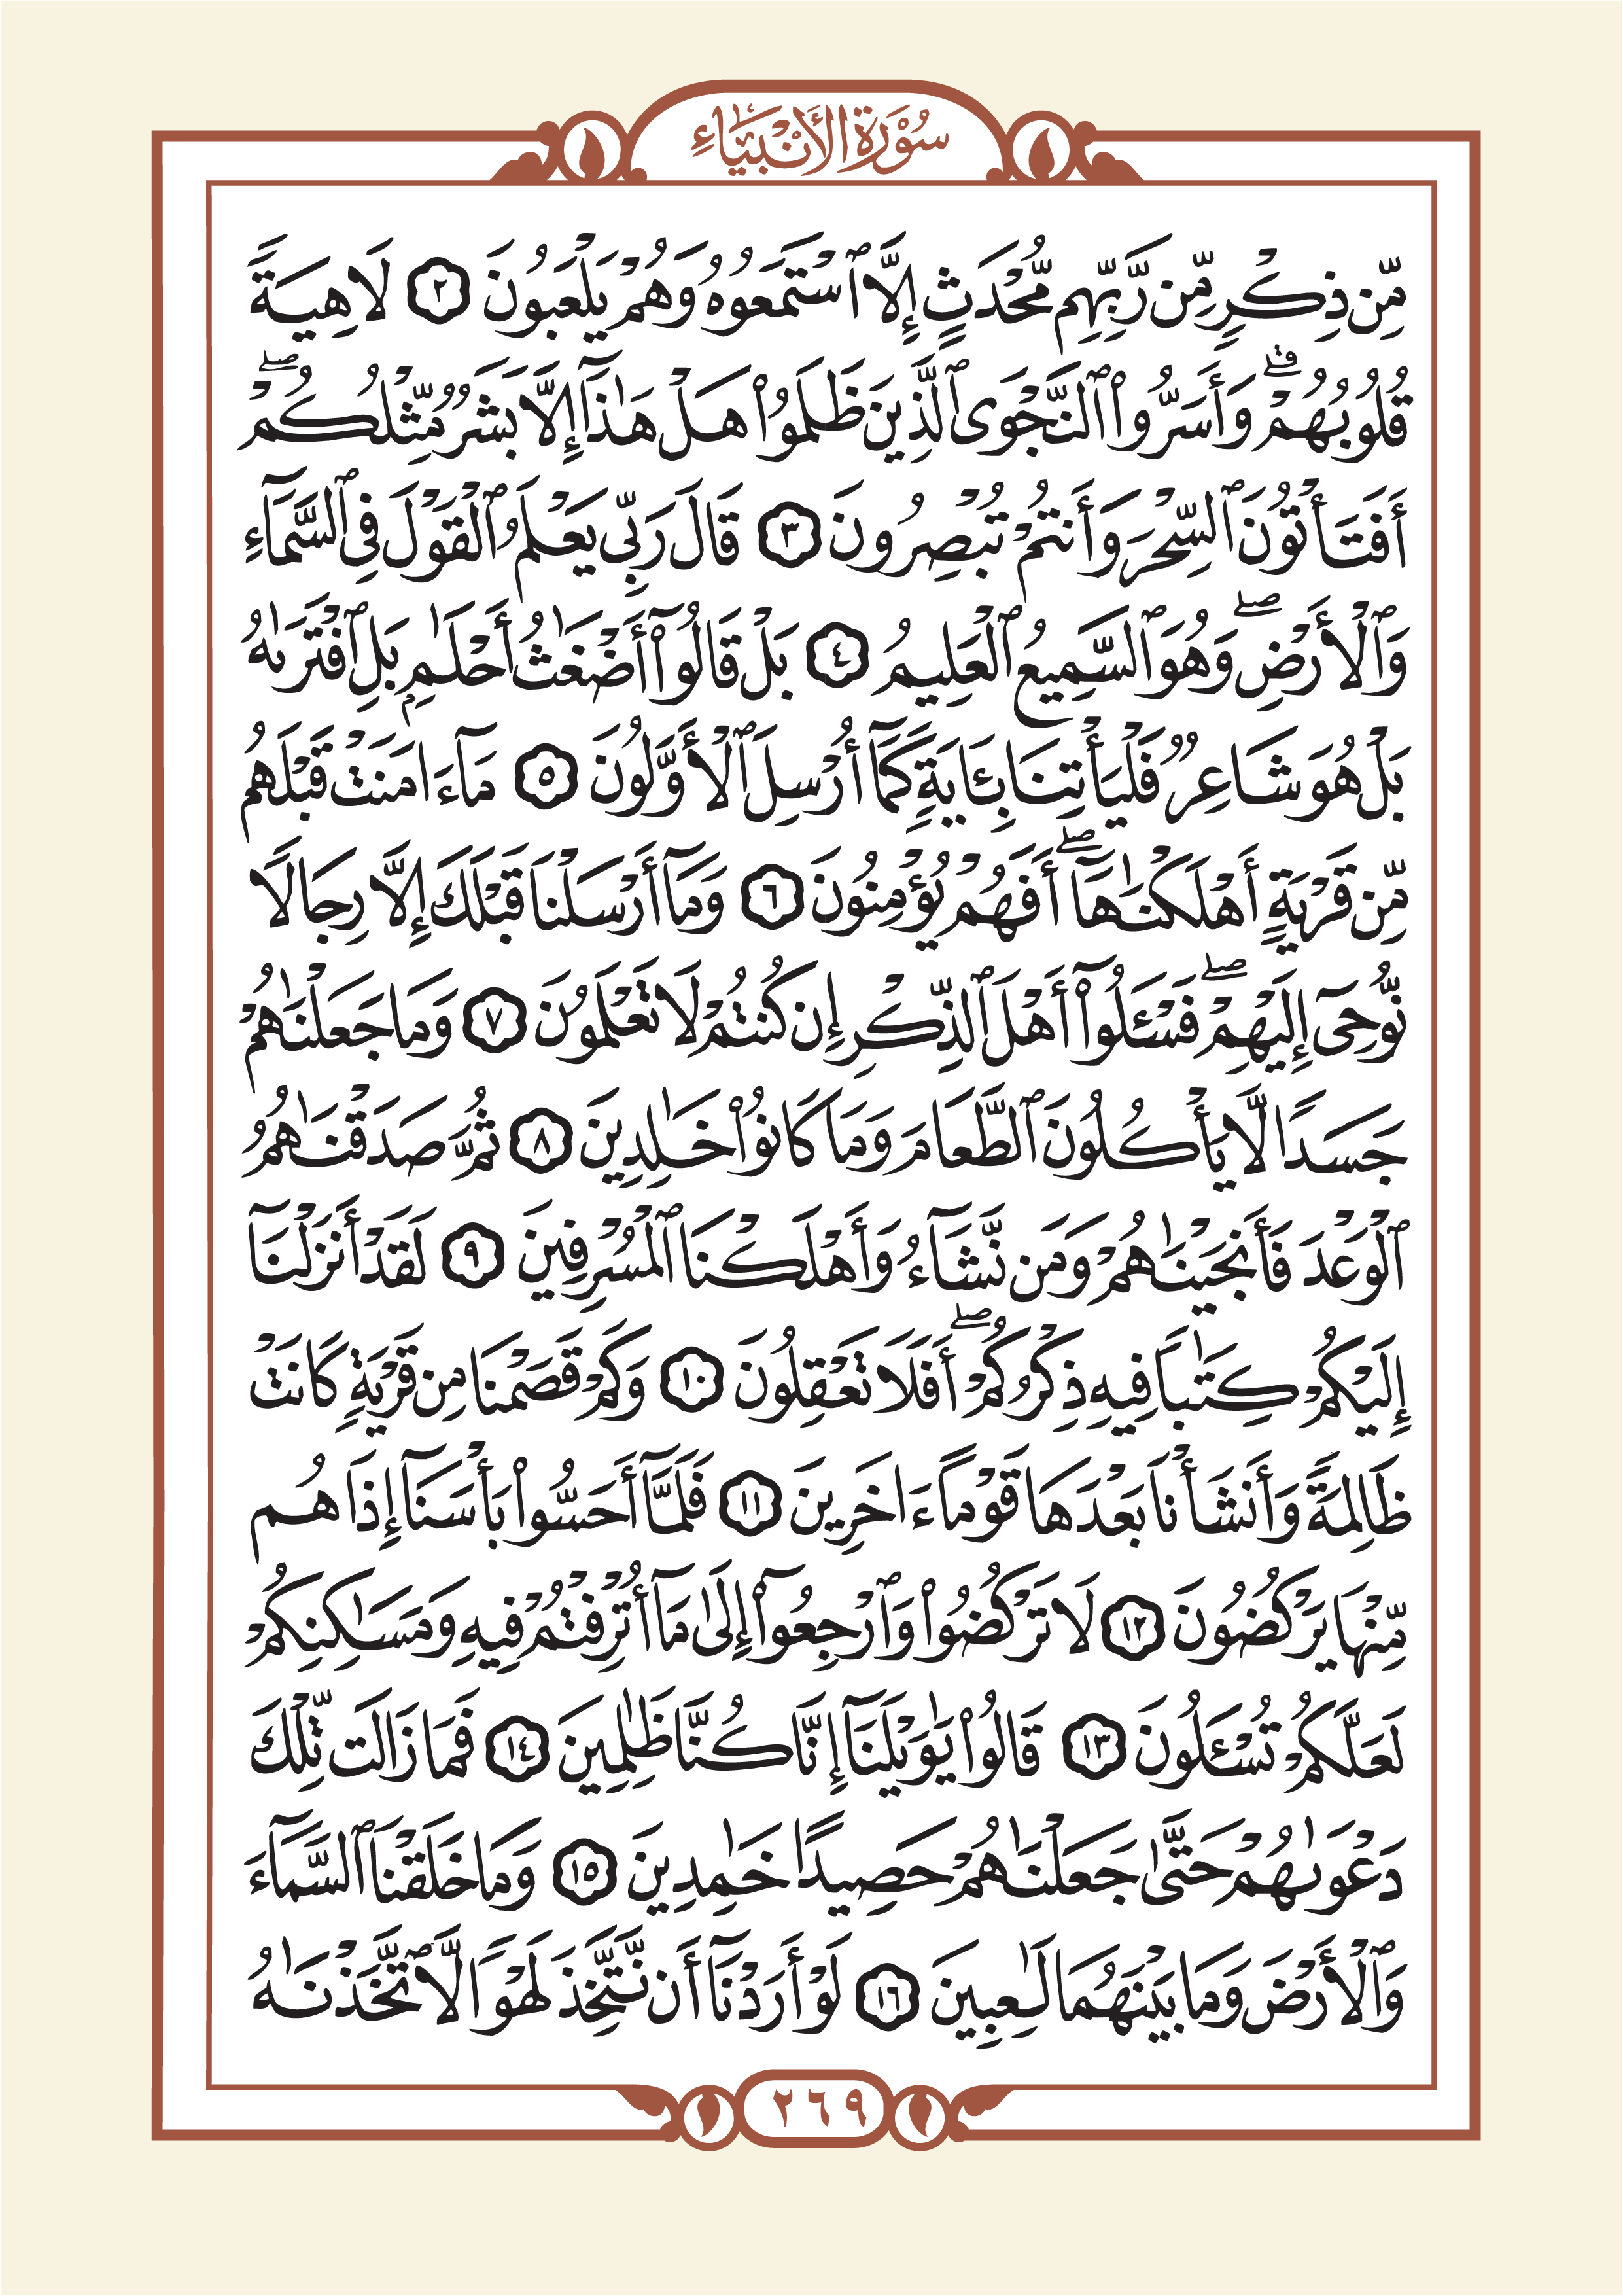 سُوْرَةُ الْأَنْبِيَاءِ
مِّن ذِكْرٍ مِّن رَّبِّهِم مُّحْدَثٍ إِلَّا ٱسْتَمَعُوهُ وَهُمْ يَلْعَبُونَ ٢ لَاهِيَةً
قُلُوبُهُمْ ۗ وَأَسَرُّوا۟ ٱلنَّجْوَى ٱلَّذِينَ ظَلَمُوا۟ هَلْ هَٰذَآ إِلَّا بَشَرٌ مِّثْلُكُمْ ۖ
أَفَتَأْتُونَ ٱلسِّحْرَ وَأَنتُمْ تُبْصِرُونَ ٣ قَالَ رَبِّى يَعْلَمُ ٱلْقَوْلَ فِى ٱلسَّمَآءِ
وَٱلْأَرْضِ ۖ وَهُوَ ٱلسَّمِيعُ ٱلْعَلِيمُ ٤ بَلْ قَالُوٓا۟ أَضْغَٰثُ أَحْلَٰمٍۭ بَلِ ٱفْتَرَىٰهُ
بَلْ هُوَ شَاعِرٌ فَلْيَأْتِنَا بِـَٔايَةٍ كَمَآ أُرْسِلَ ٱلْأَوَّلُونَ ٥ مَآ ءَامَنَتْ قَبْلَهُم
مِّن قَرْيَةٍ أَهْلَكْنَٰهَآ ۖ أَفَهُمْ يُؤْمِنُونَ ٦ وَمَآ أَرْسَلْنَا قَبْلَكَ إِلَّا رِجَالًا
نُّوحِىٓ إِلَيْهِمْ ۖ فَسْـَٔلُوٓا۟ أَهْلَ ٱلذِّكْرِ إِن كُنتُمْ لَا تَعْلَمُونَ ٧ وَمَا جَعَلْنَٰهُمْ
جَسَدًا لَّا يَأْكُلُونَ ٱلطَّعَامَ وَمَا كَانُوا۟ خَٰلِدِينَ ٨ ثُمَّ صَدَقْنَٰهُمُ
ٱلْوَعْدَ فَأَنجَيْنَٰهُمْ وَمَن نَّشَآءُ وَأَهْلَكْنَا ٱلْمُسْرِفِينَ ٩ لَقَدْ أَنزَلْنَآ
إِلَيْكُمْ كِتَٰبًا فِيهِ ذِكْرُكُمْ ۖ أَفَلَا تَعْقِلُونَ ١٠ وَكَمْ قَصَمْنَا مِن قَرْيَةٍ كَانَتْ
ظَالِمَةً وَأَنشَأْنَا بَعْدَهَا قَوْمًا ءَاخَرِينَ ١١ فَلَمَّآ أَحَسُّوا۟ بَأْسَنَآ إِذَا هُم
مِّنْهَا يَرْكُضُونَ ١٢ لَا تَرْكُضُوا۟ وَٱرْجِعُوٓا۟ إِلَىٰ مَآ أُتْرِفْتُمْ فِيهِ وَمَسَٰكِنِكُمْ
لَعَلَّكُمْ تُسْـَٔلُونَ ١٣ قَالُوا۟ يَٰوَيْلَنَآ إِنَّا كُنَّا ظَٰلِمِينَ ١٤ فَمَا زَالَت تِّلْكَ
دَعْوَىٰهُمْ حَتَّىٰ جَعَلْنَٰهُمْ حَصِيدًا خَٰمِدِينَ ١٥ وَمَا خَلَقْنَا ٱلسَّمَآءَ
وَٱلْأَرْضَ وَمَا بَيْنَهُمَا لَٰعِبِينَ ١٦ لَوْ أَرَدْنَآ أَن نَّتَّخِذَ لَهْوًا لَّٱتَّخَذْنَٰهُ
٢٦٩